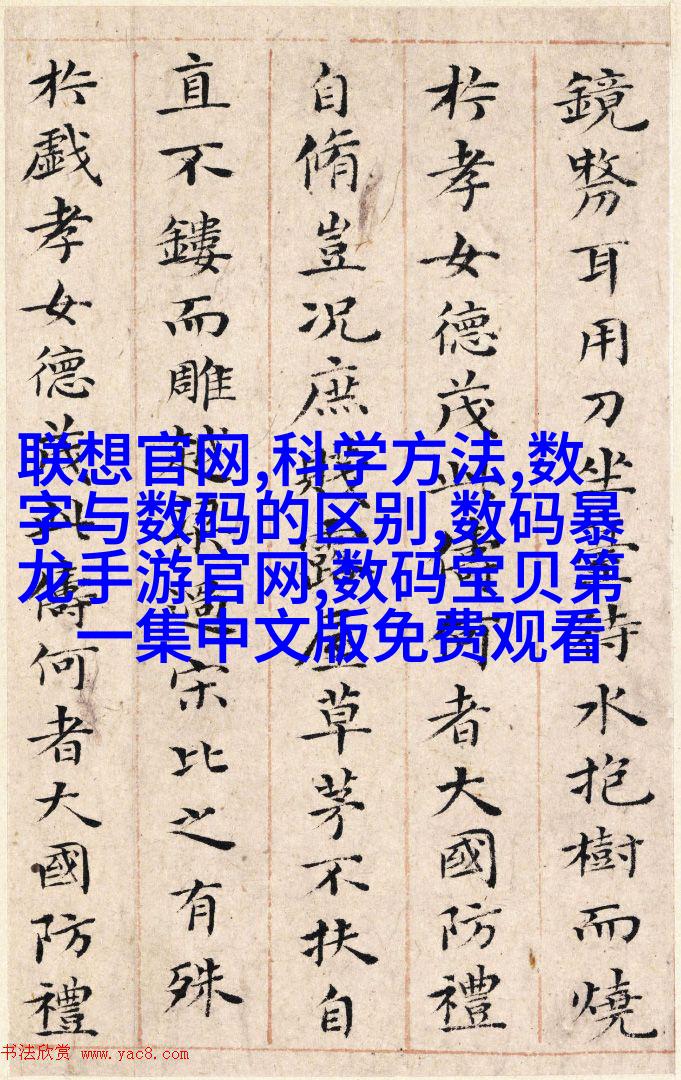 鏡剺耳用刀坐臺待水抱樹而燒
扵孝女德茂此儔何者大國防禮
自脩豈況庶賤露屋草茅不扶自
直不鏤而雕越梁過宋比之有殊
扵戯孝女德茂此儔何者大國防禮
联想官网,科学方法,数
字与数码的区别,数码暴
龙手游官网,数码宝贝第
一集中文版免费观看
书法欣赏 www.yac8.com